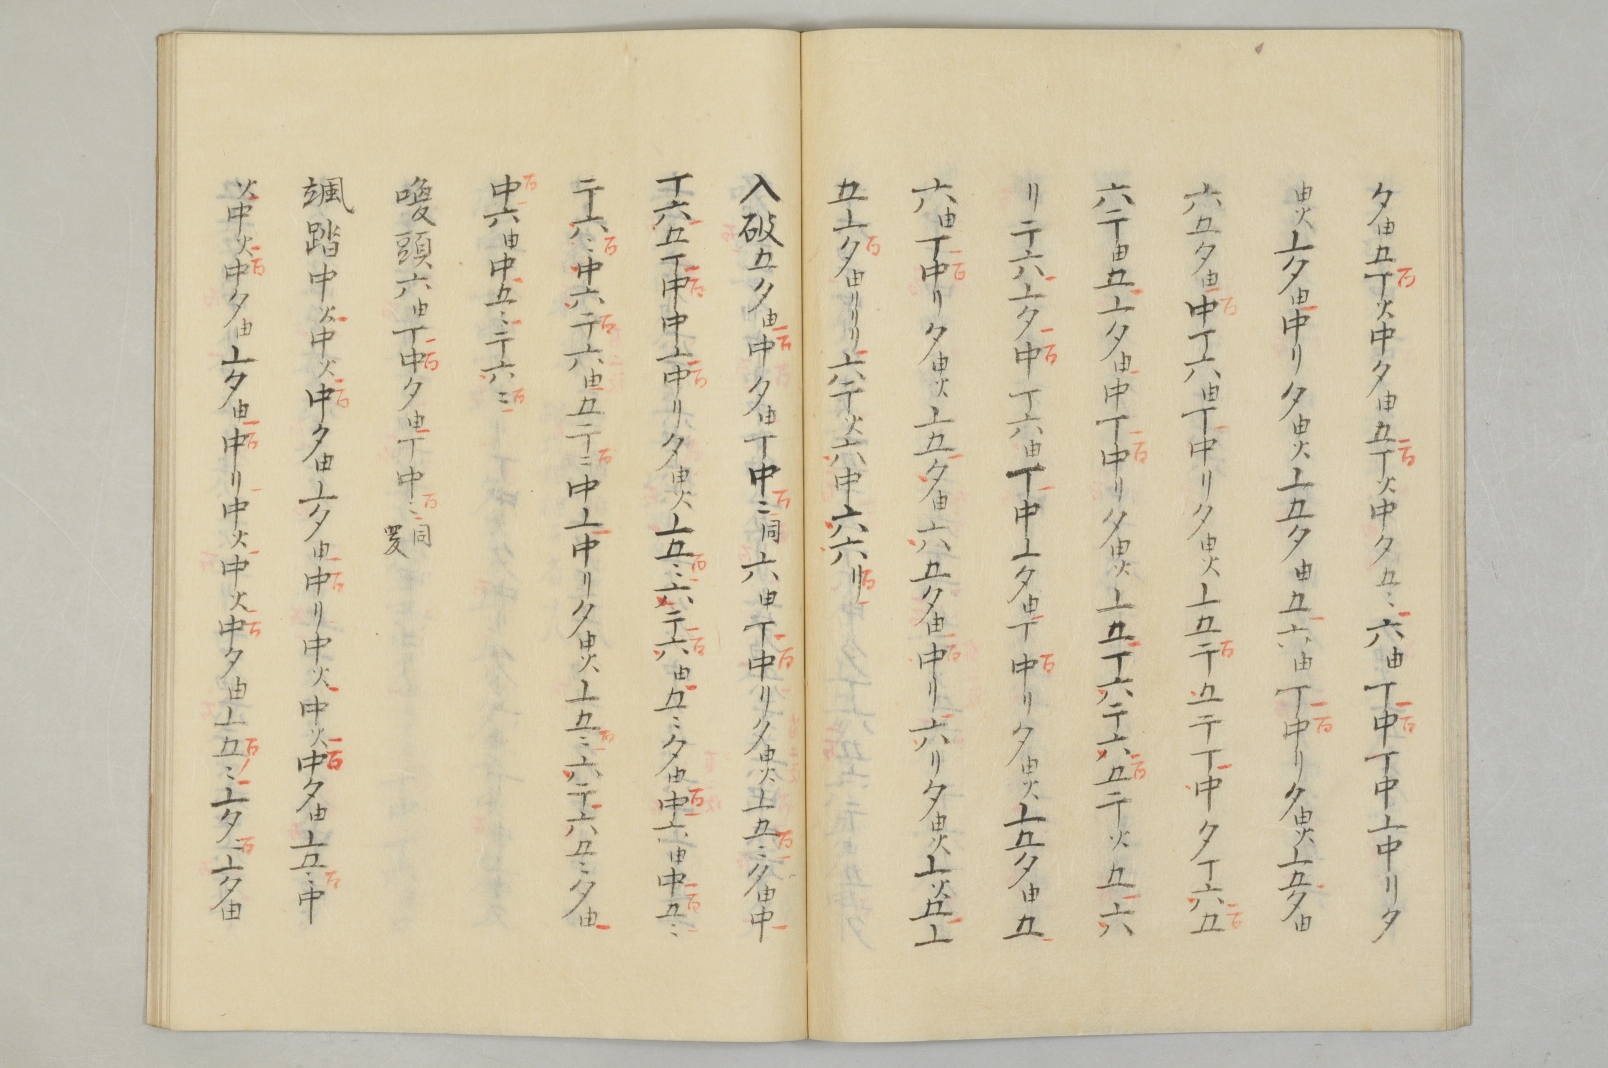 夕由五丅火中夕由五丅火中夕五〻六由丅中丅中丄中リ夕
由火丄夕由中リ夕由火丄五夕由五六由丅中リ夕由火丄五夕由
六五夕由中丅六由丅中リ夕由火丄五亍五亍丅中夕丅六五
六亍由五丄夕由中丅中リ夕由火丄五丅六亍六五亍火五六
リ亍六丄夕中丅六由丅中丄夕由丅中リ夕由火丄五夕由五
六由丅中リ夕由火丄五夕由六五夕由中リ六リ夕由火丄火五丄
五丄夕由リリリ六亍火六中六六リリ
入破五夕由中夕由丅中〻同六由丅中リ夕由火丄五〻夕由中
丅六五丅中中丄中リ夕由火丄五〻六亍六由五〻夕由中六由中五〻
亍六〻中六亍六由五亍〻中丄中リ夕由火丄五〻六亍六五〻夕由
中六由中五〻亍六〻
喚頭六由丅中夕由丅中〻同
颯踏中火中火中夕由丄夕由中リ中火中火中夕由丄五〻中
火中火中夕由丄夕由中リ中火中火中夕由丄五〻丄夕〻丄夕由